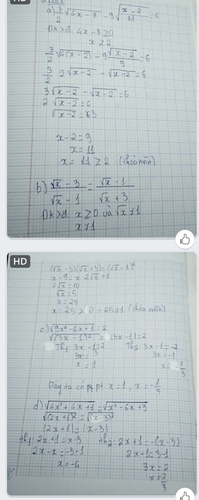 HD
a) 3/2 √4x - 8 - 9√(x-2)/81 = 6
4x - 8 ≥ 0
x ≥ 2
3/2 √4(x-2) - 9 √x-2/9 = 6
3/2 · 2 √x-2 - √x-2 = 6
3√x-2 - √x-2 = 6
2√x-2 = 6
√x-2 = 3
x-2 = 9
x = 11
x = 11 ≥ 2 (thỏa mãn)
b) (√x - 3)/(√x - 1) = (√x - 1)/(√x + 3)
x ≥ 0 và √x ≠ 1
x ≠ 1
HD
(√x - 3)(√x + 3) = (√x - 1)²
x - 9 = x - 2√x + 1
2√x = 10
√x = 5
x = 25
x = 25 ≥ 0, 25 ≠ 1 (thỏa mãn)
c) √9x² - 6x + 1 = 2
√(3x - 1)² = 2
|3x - 1| = 2
Th1 3x - 1 = 2
3x = 3
x = 1
Th2 3x - 1 = -2
3x = -1
x = -1/3
Vậy ta có x = 1, x = -1/3
d) √4x² + 4x + 1 = √x² - 6x + 9
√(2x + 1)² = √(x - 3)²
|2x + 1| = |x - 3|
Th1: 2x + 1 = x - 3
2x - x = -3 - 1
x = -4
Th2: 2x + 1 = -(x - 3)
2x + 1 = 3 - x
3x = 2
x = 2/3